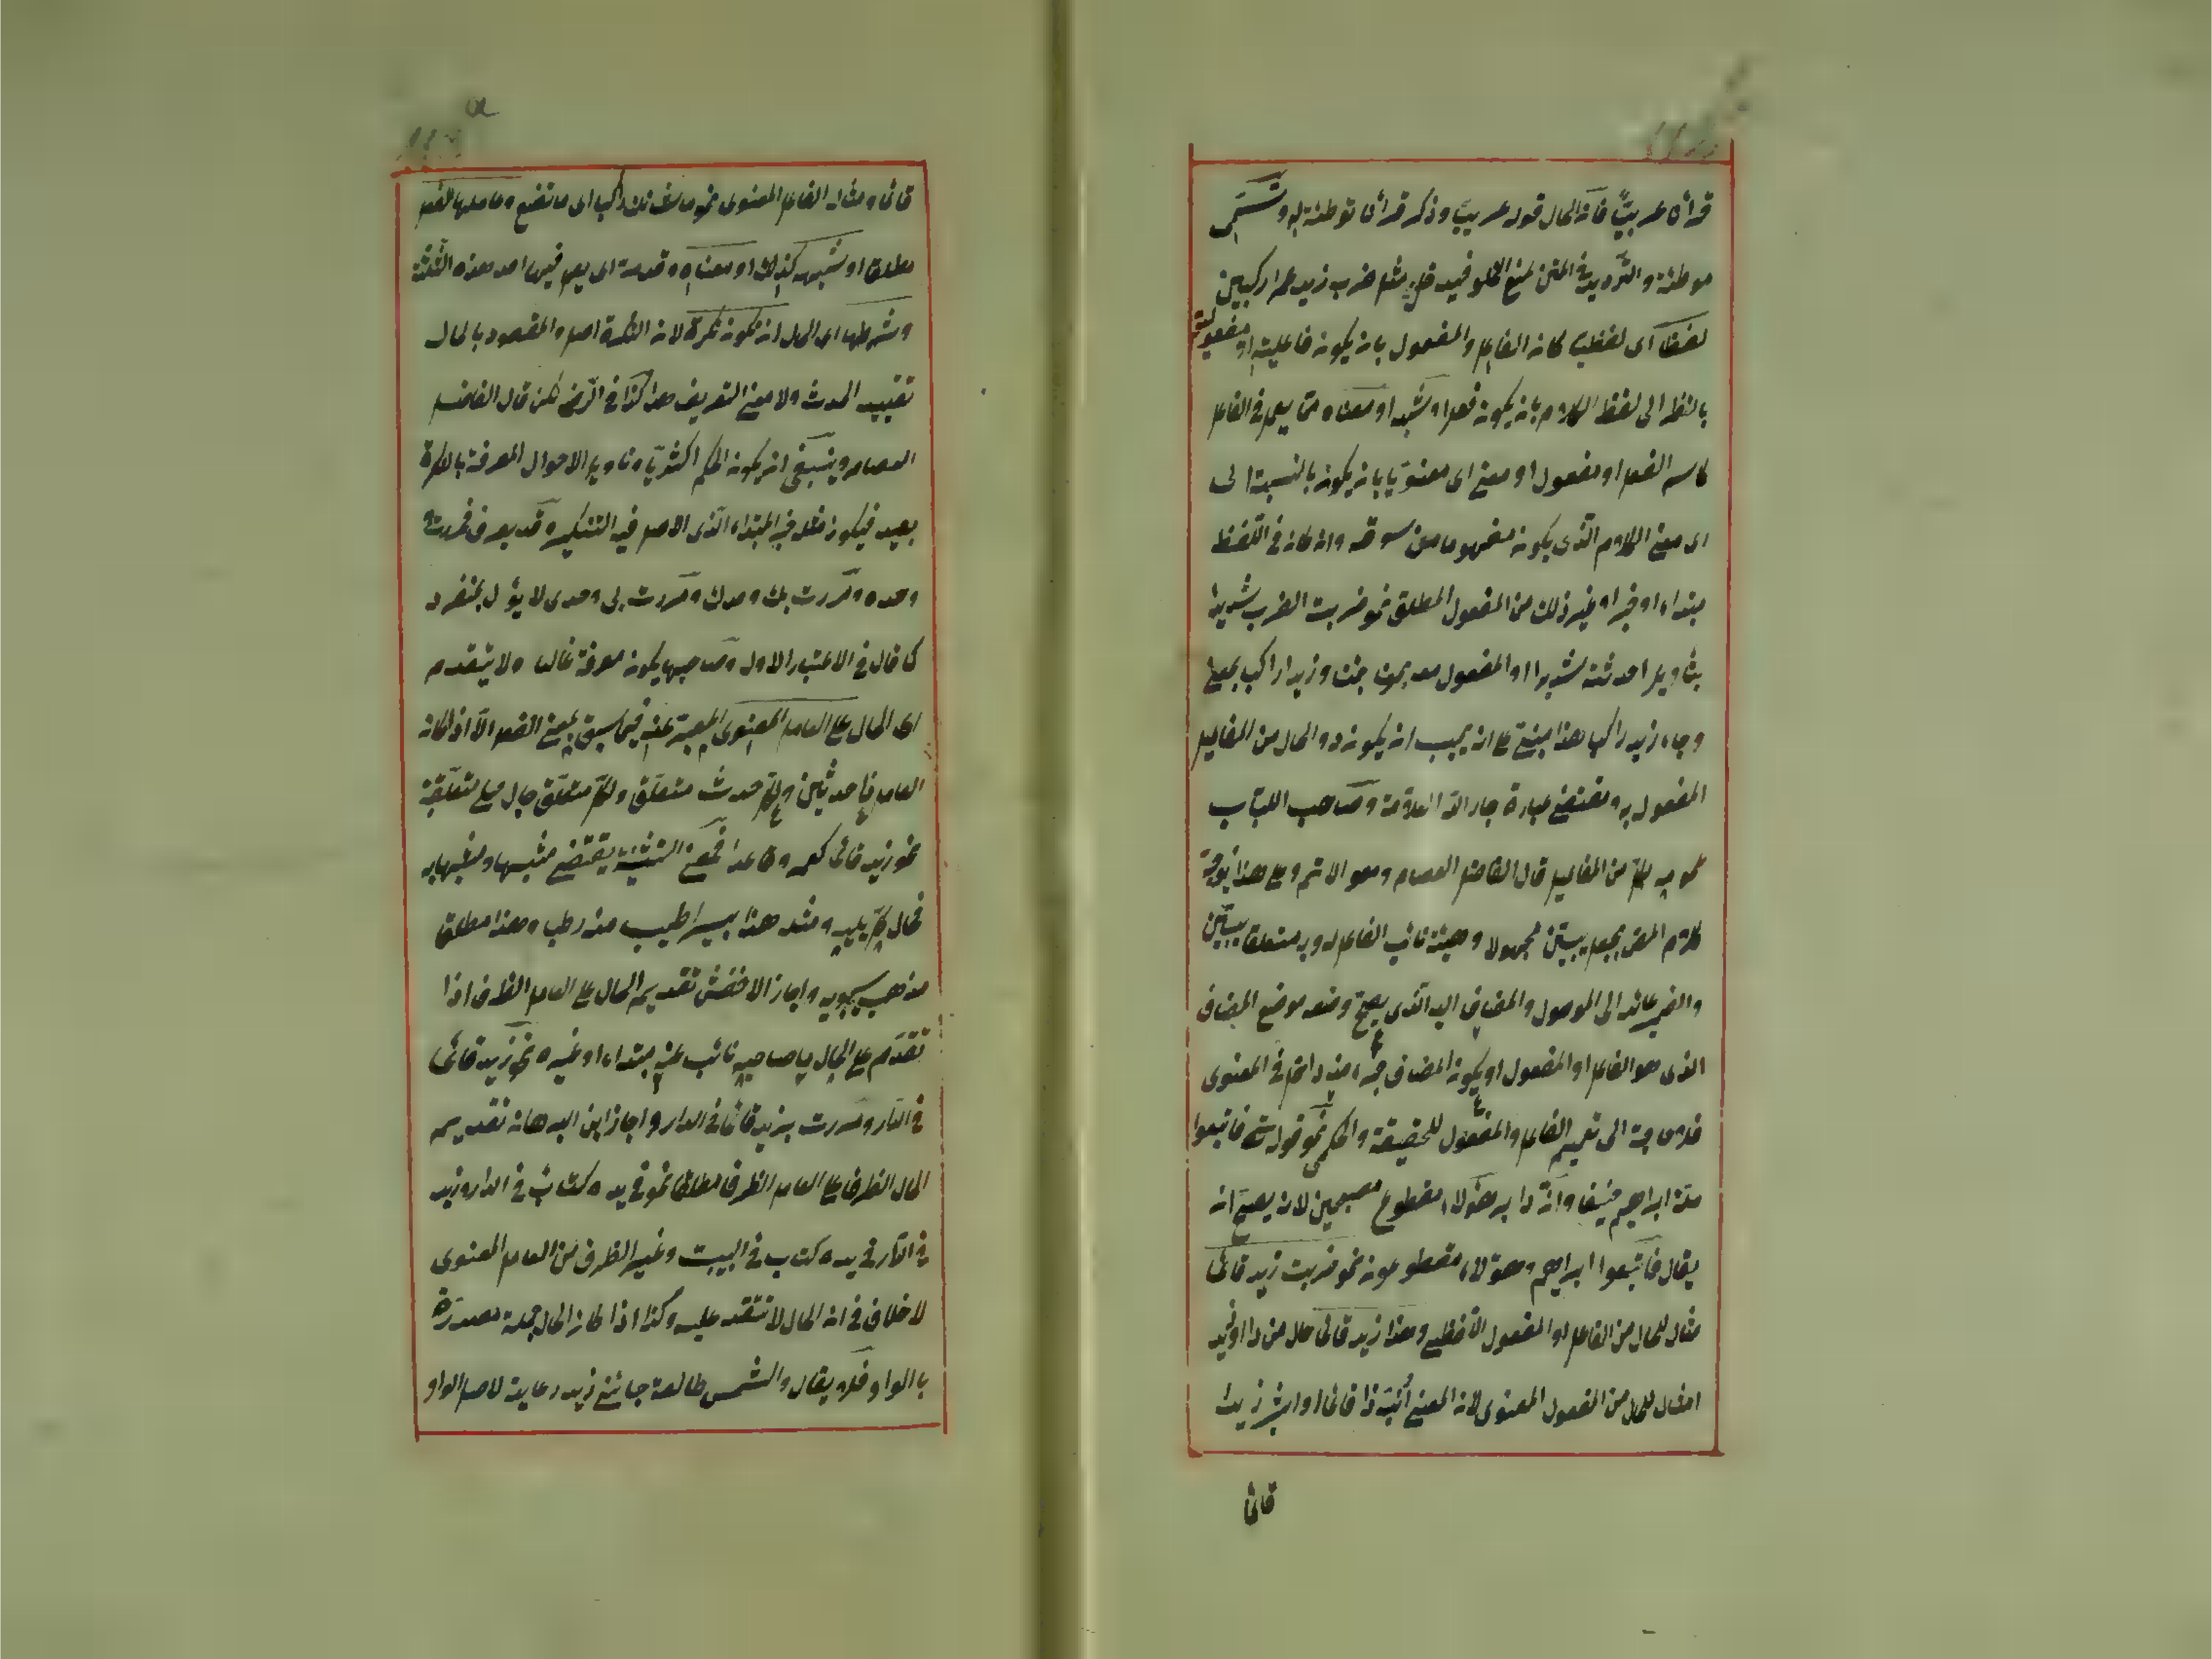 قرأن عربيًّا فان الحال قوله عربيّا وذكر قرأن توطئة له وتسمى
موطئة والترديد في المتن لمنع الخلو فيدخل مثل ضرب زيد عمرا راكبين
لفظا اى لفظيا كان الفاعل والمفعول بان يكون فاعليته او مفعوليته
بالنظر الى لفظ الكلام بان يكون فعلا وشبهه او معناه مما يعمل في الفاعل
كاسم الفعل او مفعول او معنى اى معنويا بان يكون بالنسبة الى
اى معنى الكلام الذى يكون مفهوما من سوقه وان كان في اللفظ
مبتداء او خبرا او غير ذلك من المفعول المطلق نحو ضربت الضرب شديدا
بتأويل احدثته شديدا او المفعول معه نحو جئت وزيدا راكبا بمعنى
وجاء زيد راكبا هذا مبنى على انه يجب ان يكون ذو الحال من المفاعيل
المفعول به ومقتضى عبارة جار الله العلامة وصاحب اللباب
نحويه كل من المفاعيل قال الفاضل العصام وهو الاتم وعلى هذا يوجه
كلام المص بجعل يبين مجهولا وهيئة نائب الفاعل له وبه متعلقا بيبين
والضمير عائد الى الموصول والمضاف اليه الذى يصح وضعه موضع المضاف
الذى هو الفاعل او المفعول او يكون المضاف جزء منه داخل في المعنوى
فلا حاجة الى تعميم الفاعل والمفعول للحقيقة والحكمى نحو قوله تع فاتبعوا
ملة ابراهيم حنيفا وان دابر هؤلاء مقطوع مصبحين لانه يصح ان
يقال فاتبعوا ابراهيم وهؤلاء مقطوعون نحو ضربت زيدا قائما
مثال للحال من الفاعل او المفعول اللفظى وهذا زيد قائما حال من ذا او زيد
امثال للحال من المفعول المعنوى لان المعنى أنبه ذا قائما او اشير زيدا
قائما
قائما ومثال الفاعل المعنوى نحو ما شانك راكبا اى ما تصنع وعاملها الفعل
مطلقا او شبهه كذلك او معناه وقدمت اى يعمل فيها احد هذه الثلثة
وشرطها اى الحال ان تكون نكرة لان النكرة اصل والمقصود بالحال
تقييد الحدث ولا معنى للتعريف هذا كذا في الرضى لكن قال الفاضل
العصام وينبغى ان يكون الحكم اكثريا وتأويل الاحوال المعرفة بالنكرة
بعيد فيكون مثل خبر المبتداء الذى الاصل فيه التنكير وقد يعرف فمررت به
وحده ومررت بك وحدك ومررت بى وحدى لا يؤل بمنفرد
كما قال في الاعتبار الاول وصاحبها يكون معرفة غالبا ولا يتقدم
اى الحال على العامل المعنوى المعبر عنه فيما سبق بمعنى الفعل الا اذا كان
العامل حدثين ولكل حدث متعلق ولكل متعلق حال يلى متعلقه
نحو زيد قائما كعمرو قاعدا فمعنى التشبيه يقتضى مشبها ومشبها به
فحال كل يليه ومثله هذا بسرا اطيب منه رطبا وهذا مطلقا
مذهب سيبويه واجاز الاخفش تقديم الحال على العامل الظرف اذا
تقدم على الحال يا صاحبه نائب عنه مبتداء او غيره نحو زيد قائما
في الدار ومررت بزيد قائما في الدار واجاز ابن البرهان تقديم
الحال الظرف على العامل الظرف مطلقا نحو في يده كتاب في الدار وزيد
في الدار في يده كتاب في البيت وغير الظرف من العامل المعنوى
لا خلاف في ان الحال لا تتقدم عليه وكذا اذا كان الحال جملة مصدرة
بالواو فلا يقال والشمس طالعة جائنى زيد رعاية لاصل الواو